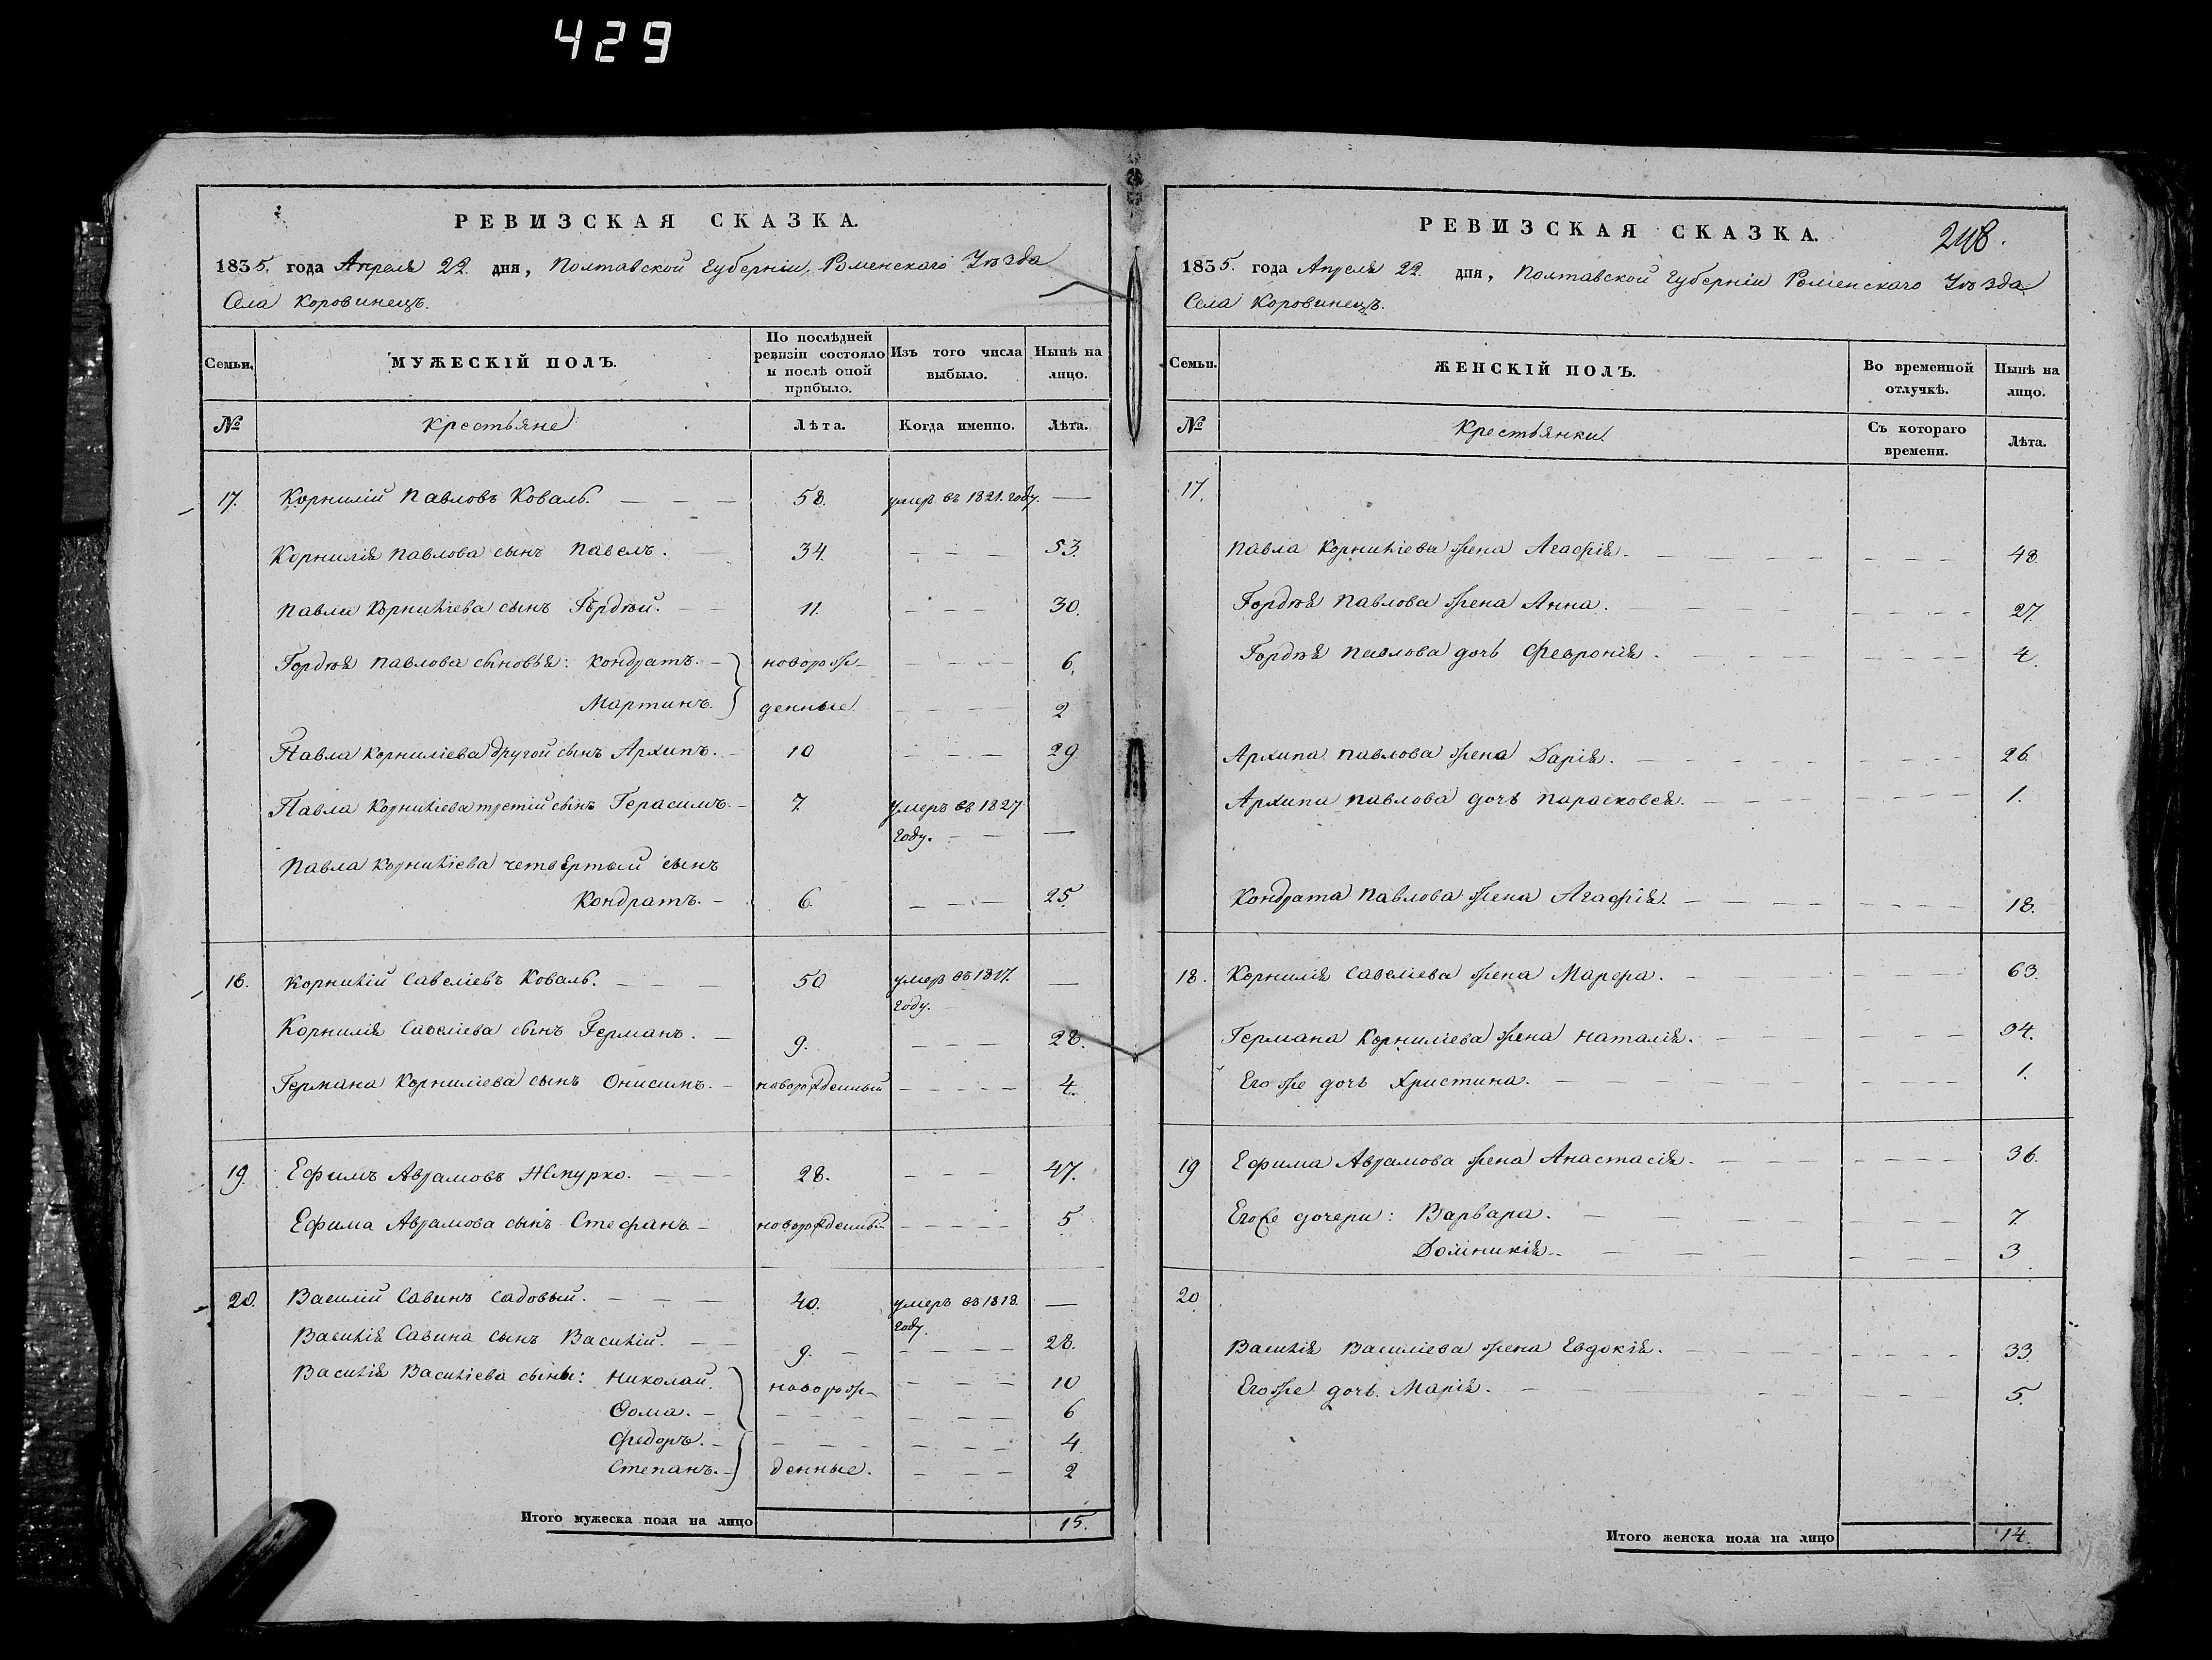 429
РЕВИЗСКАЯ СКАЗКА.
1835. года Апреля 22. дня, Полтавской Губерніи, Роменскаго Уѣзда
Села Коровинецъ.
Семьи.
МУЖЕСКІЙ ПОЛЪ.
По послѣдней ревизіи состояло и послѣ оной прибыло.
Изъ того числа выбыло.
Нынѣ на лицо.
№
Крестьяне
Лѣта.
Когда именно.
Лѣта.
17. Корнилій Павловъ Коваль. — — — 58. умеръ въ 1821. году. —
Корнилія Павлова сынъ Павелъ. — 34. — — — 53.
Павла Корниліева сынъ Гордѣй. — — 11. — — — 30.
Гордѣя Павлова сыновья: Кондратъ. — новорож- — — — 6.
Мартинъ. денные — — — — 2
Павла Корниліева другой сынъ Архипъ. — 10 — — — 29
Павла Корниліева третій сынъ Герасимъ. — 7 умеръ въ 1827
году. — — —
Павла Корниліева четвертый сынъ
Кондратъ. — 6. — — — 25.
18. Корнилій Савеліевъ Коваль. — — — 50 умеръ въ 1817. —
году. —
Корнилія Савеліева сынъ Германъ. — 9. — — — 28.
Германа Корниліева сынъ Онисимъ. — новорожденный — — — — 4.
19. Ефимъ Аврамовъ Жмурко. — — — 28. — — — 47.
Ефима Аврамова сынъ Стефанъ — новорожденный — — — — 5
20. Василій Савинъ Садовый. — — — 40. умеръ въ 1818. —
году.
Василія Савина сынъ Василій. — — 9. — — — — — 28.
Василія Василіева сыны: Николай. новорож- — — — 10
Ѳома. — — — — — — — — 6
Федоръ. — — — — — — — 4
Степанъ. — денные. — — — 2
Итого мужеска пола на лицо 15.
РЕВИЗСКАЯ СКАЗКА.
248.
1835. года Апреля 22. дня, Полтавской Губерніи Роменскаго Уѣзда
Села Коровинецъ.
Семьи.
ЖЕНСКІЙ ПОЛЪ.
Во временной отлучкѣ.
Нынѣ на лицо.
№
Крестьянки.
Съ котораго времени.
Лѣта.
17.
Павла Корниліева жена Агафія. — — — — — — — — 48
Гордѣя Павлова жена Анна. — — — — — — — — 27.
Гордѣя Павлова дочь Февронія. — — — — 4.
Архипа Павлова жена Дарія. — — — — — — — — 26.
Архипа Павлова дочь Парасковея. — — — — — — — — 1.
Кондрата Павлова жена Агафія. — — — — — — — — 18.
18. Корнилія Савеліева жена Марфа. — — — — — — 63.
Германа Корниліева жена Наталія. — — — — — — 34.
Его же дочь Христина. — — — — — — — 1.
19 Ефима Аврамова жена Анастасія. — — — — — — — 36.
Его же дочери: Варвара. — — — — — — — 7.
Домникія. — — — — — — 3
20
Василія Василіева жена Евдокія. — — — — — — 33
Его же дочь Марія. — — — — — — 5.
Итого женска пола на лицо 14.